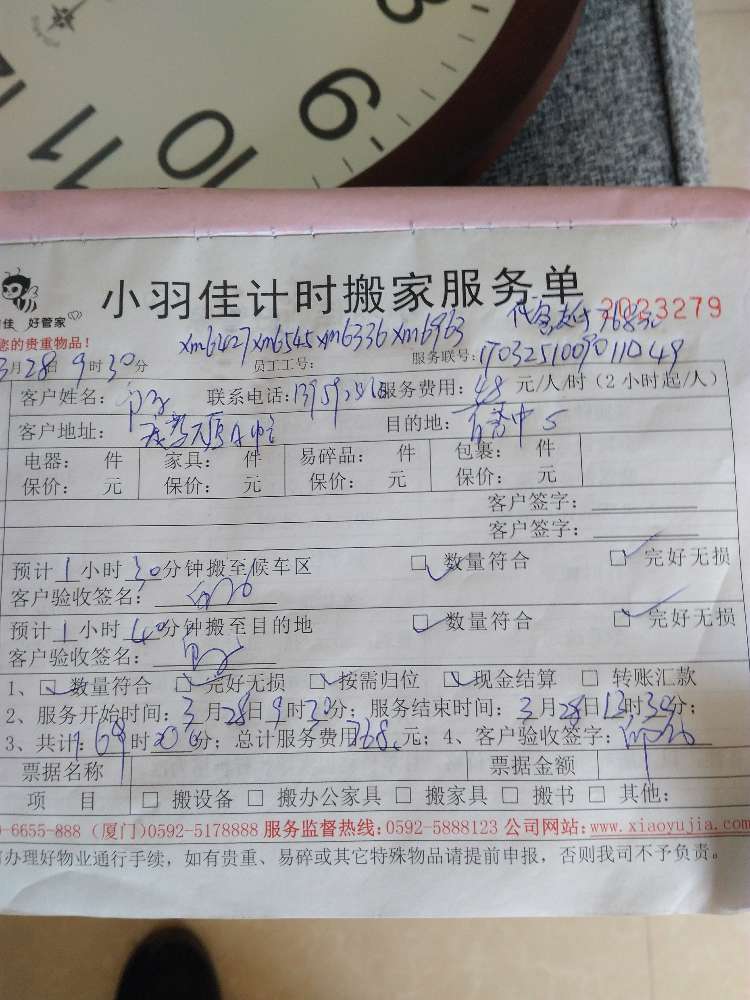 6
11
10
小羽佳计时搬家服务单
2023279
佳 好管家
您的贵重物品!
xm6427 xm6545 xm6336 xm6963
768元
3月28日9时30分
员工工号:
服务联号:
客户姓名:
联系电话:
服务费用:48元/人/时(2小时起/人)
客户地址:
目的地:
电器: 件 家具: 件 易碎品: 件 包裹: 件
保价: 元 保价: 元 保价: 元 保价: 元
客户签字:
客户签字:
预计1小时30分钟搬至候车区 □数量符合 □完好无损
客户验收签名:
预计1小时40分钟搬至目的地 □数量符合 □完好无损
客户验收签名:
1、□数量符合 □完好无损 □按需归位 □现金结算 □转账汇款
2、服务开始时间:3月28日9时30分;服务结束时间:3月28日12时30分;
3、共计: 时 分;总计服务费用768元;4、客户验收签字:
票据名称 票据金额
项 目 □搬设备 □搬办公家具 □搬家具 □搬书 □其他:
-6655-888 (厦门)0592-5178888 服务监督热线:0592-5888123 公司网站:www.xiaoyujia.com
办理好物业通行手续,如有贵重、易碎或其它特殊物品请提前申报,否则我司不予负责。